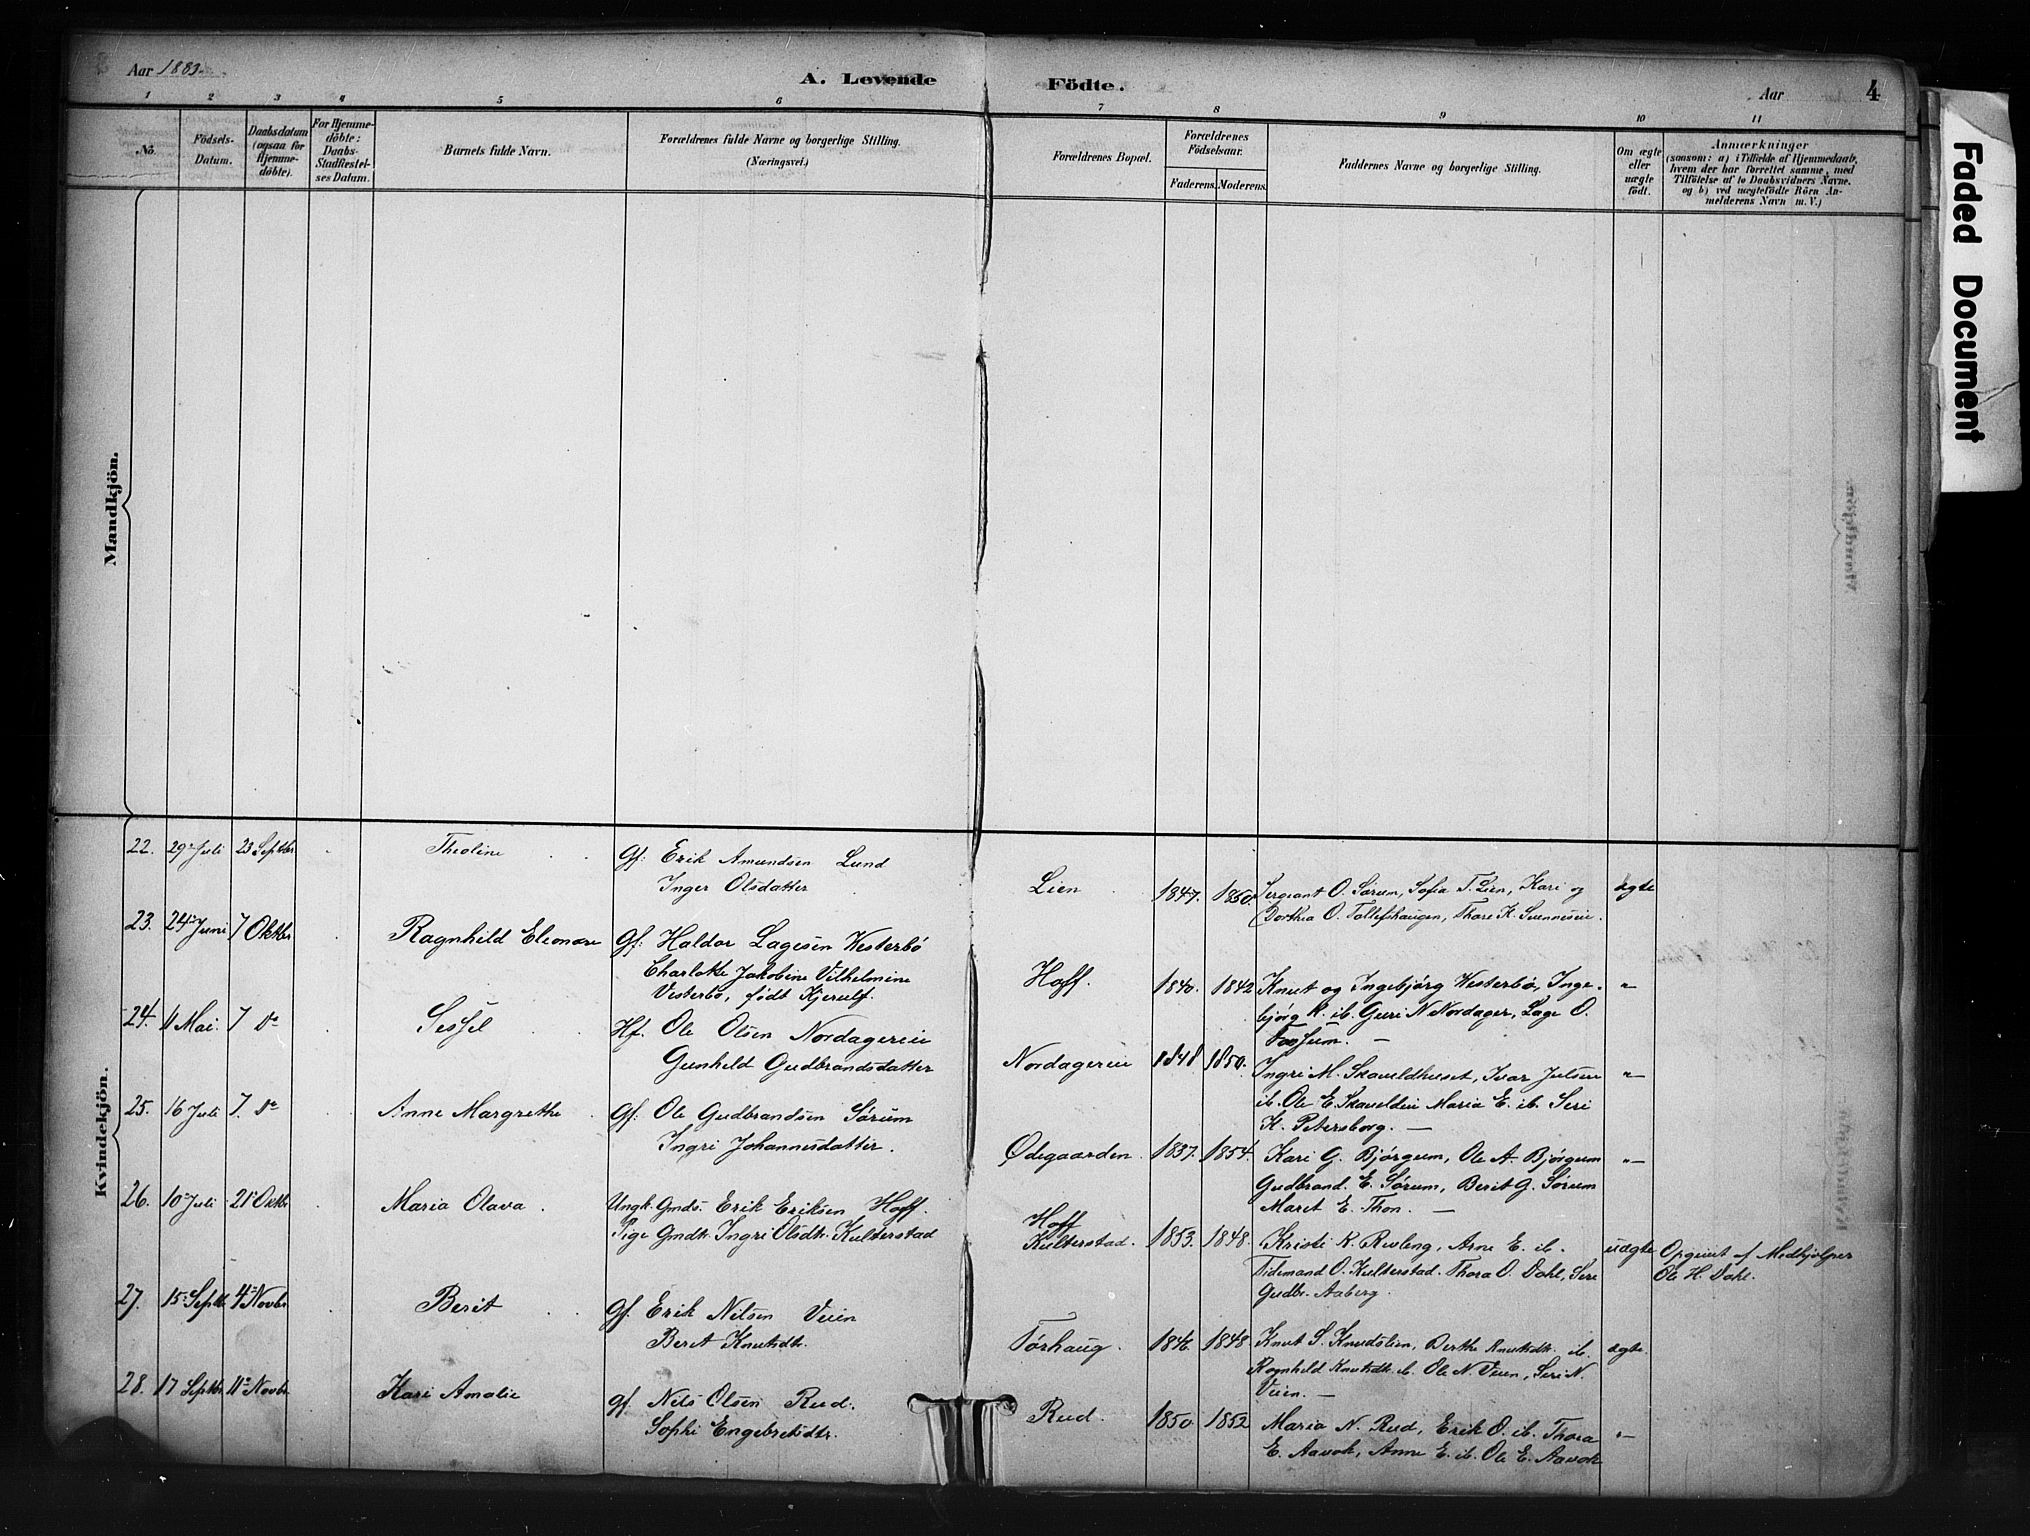 Aar 1883.
A. Levende Födte.
Aar
4
1 2 3 4 5 6 7 8 9 10 11
No.
Födsels-
Datum.
Daabsdatum
(ogsaa for
Hjemme-
döbte).
For Hjemme-
döbte:
Daabs-
Stadfæstel-
ses Datum.
Barnets fulde Navn.
Forældrenes fulde Navne og borgerlige Stilling.
(Næringsvei.)
Forældrenes Bopæl.
Forældrenes
Födselsaar.
Faderens. Moderens.
Faddernes Navne og borgerlige Stilling.
Om ægte
eller
uægte
födt.
Anmærkninger
(saasom: a) i Tilfælde af Hjemmedaab,
hvem der har forrettet samme, med
Tilföielse af to Daabsvidners Navne.
og b) ved uægtefödte Börn An-
melderens Navn m. V.)
Faded Document
Mandkjön.
Kvindekjön.
22. 29 Juli 23 Septbr. Theoline Gf: Erik Amundsen Lund
Inger Olsdatter
Lien 1847. 1850. Sergeant O. Sørum, Sofia T. Lien, Kari og
Dorthea O. Tollefshaugen, Thore K.
ægte
23. 24 Juni 7 Oktbr Ragnhild Eleonore Gf: Haldor Lagesen Westerbø
Charlotte Jakobine Vilhelmine
Vesterbø, født Kjerulf.
Hoff. 1840. 1842 Knut og Ingebjørg Westerbø, Inge-
bjørg K. ib. Guri N Nordager, Lage O.
Fossum. —
"
24. 11 Mai. 7 do Sessel Hf. Ole Olsen Nordagereie
Gunhild Gudbrandsdatter
Nordagereie 1848 1850. Ingri M. Skavldhuset, Ivar Julsen
ib. Ole E. Maria E. ib. Siri
K. Petersborg. —
"
25. 16 Juli 7. do Anne Margrethe Gf: Ole Gudbrandsen Sørum
Ingri Johannesdatter.
Ødegaarden. 1837. 1854. Kari G. Bjørgum, Ole A. Bjørgum
Gudbrand. E. Sørum, Berit G. Sørum
Marit E. Thon. —
"
26. 10 Juli 21 Oktbr Maria Olava Ungk. Gmds. Erik Eriksen Hoff.
Pige Gmdtr. Ingri Olsdtr. Kulterstad
Hoff
Kulterstad. 1853. 1848. Kristi K. Arne E. ib.
Tidemand O. Kulterstad. Thora O. Dahl, Siri
Gudbr. Aaberg.
uægte Opgivet af Medhjælper
Ole H. Dahl.
27. 15 Septbr 4 Novbr Berit Gf. Erik Nilsen Veien
Berit Knutsdtr.
Tørhaug. 1846. 1848. Knut S. Knudslien, Berthe Knutsdtr. ib.
Ragnhild Knutsdtr. ib. Ole N. Veien, Siri N.
Veien. —
ægte.
28. 17 Septbr 11 Novbr. Kari Amalie Gf. Nils Olsen Rud.
Sophi Engebretsdtr.
Rud. 1850. 1852 Maria N. Rud, Erik O. ib. Thora
E. Aavok, Anne E. ib. Ole E. Aavok
"